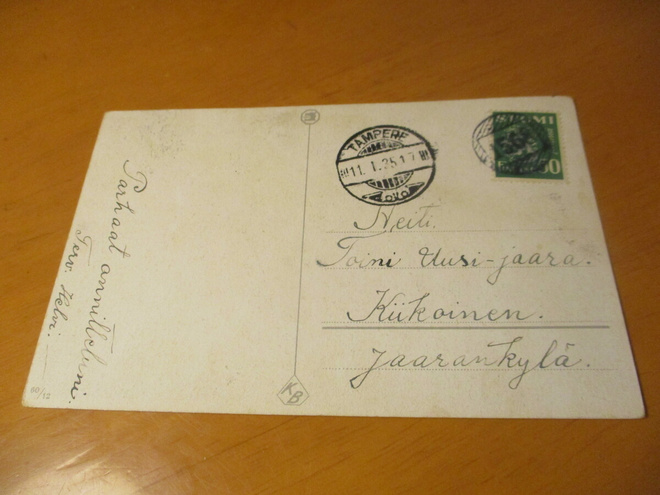 Parhaat onnitteluni.
Terv. Helvi.
60/12
KB
TAMPERE
11. I. 25. 17
SUOMI
Neiti.
Toini Uusi-jaara.
Kiikoinen.
Jaarankylä.